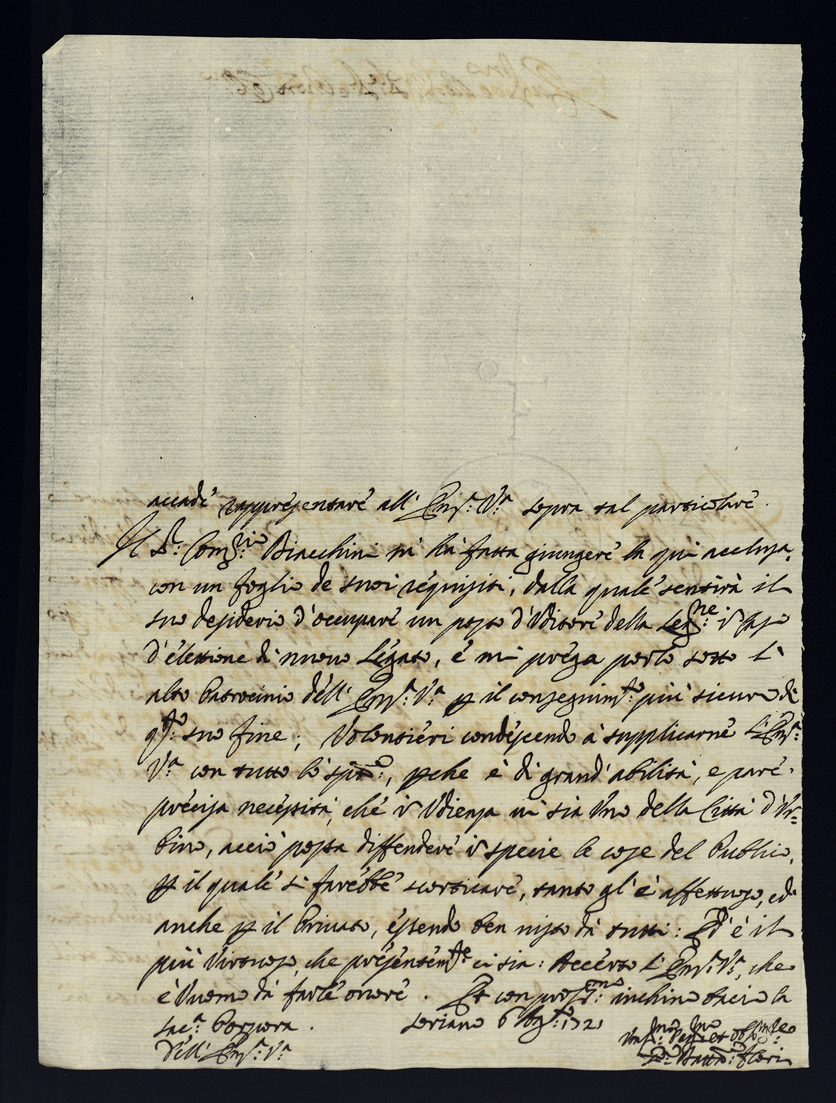 accadè rappresentare all' Em.ª V.ª sopra tal particolare.
Il S.r Biacchini mi hà fatta giungere la qui acclusa,
con un foglio de suoi requisiti, dalla quale sentirà il
suo desiderio d'occupare un posto d'Vditore della Leg.ne in caso
d'elettione di nuovo Legato, e mi prega porlo sotto l'
alto Patrocinio dell' Em.ª V.ª p il conseguim.to più sicuro di
q.to suo fine; Volentieri condescendo à supplicarne l'Em.ª
V.ª con tutto lo spirito, pche è di grand'abilità, e pare
precisa necessità, che in Vdienza vi sia Vno della Città d'Vr-
bino, acciò possa diffendere in specie le cose del Publico,
p il quale si farebbe scorticare, tanto gl'è affettuoso, ed
anche p il Privato, essendo ben visto dà tutti: Ed è il
più Virtuoso, che presentem.te ci sia: Accerto l'Em.ª V.ª, che
è Vuomo dà farle onore. Et con inchino bacio la
sac.ª Porpora. Soriano 6 Ag.to 1721
Dell' Em.ª V.ª